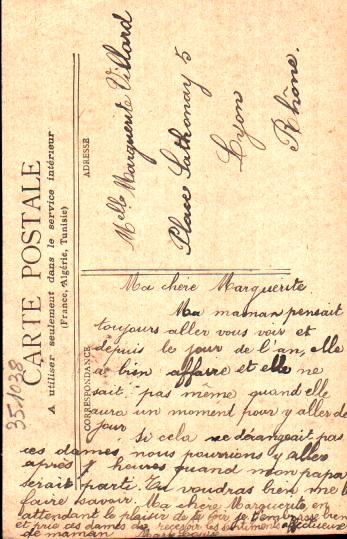 CARTE POSTALE
A utiliser seulement dans le service intérieur
(France, Algérie, Tunisie)
CORRESPONDANCE
ADRESSE
35.1038
Melle Marguerite Villard
Place Sathonay 5
Lyon
Rhône.
Ma chère Marguerite
Ma maman pensait
toujours aller vous voir et
depuis le jour de l'an, elle
a bien affaire et elle ne
sait pas même quand elle
aura un moment pour y aller de
jour
Si cela ne dérangeait pas
ces dames, nous pourrions y aller
après 7 heures quand mon papa
serait parti. Tu voudras bien me le
faire savoir. Ma chère Marguerite, en
attendant le plaisir de te voir, je t'embrasse bien
et prie ces dames de recevoir les sentiments affectueux
de maman